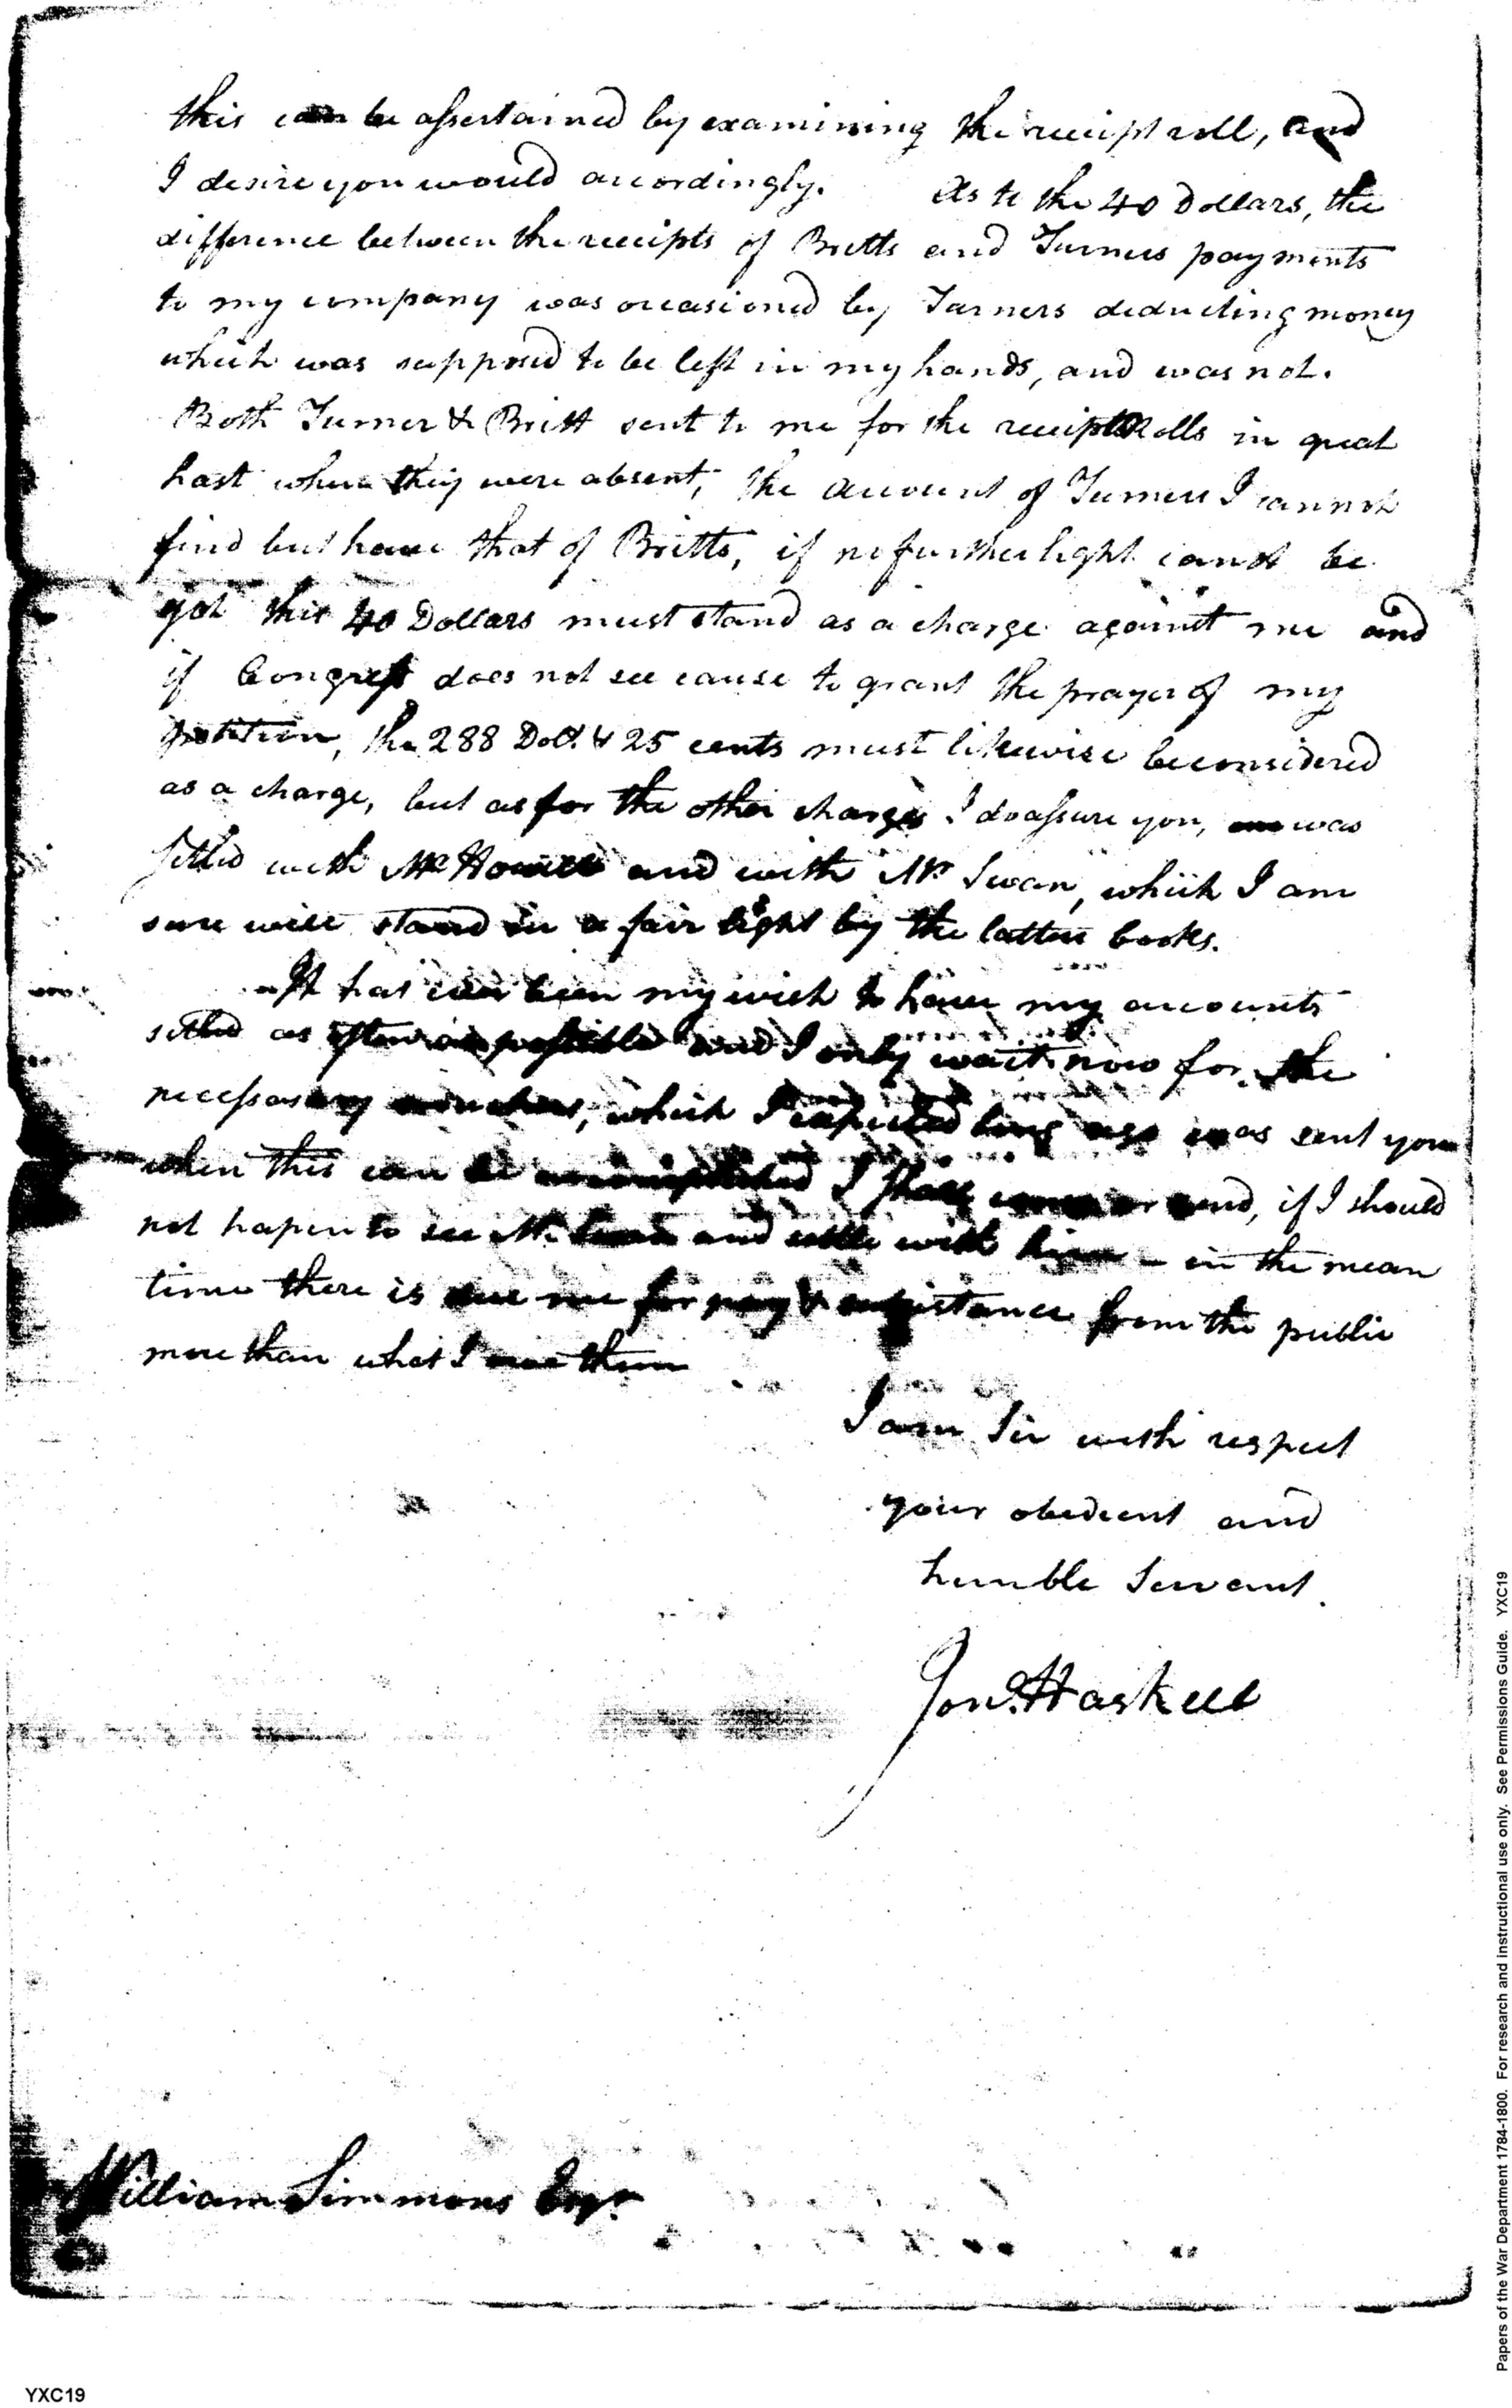 this can be assertained by examining the receipt roll, and
I desire you would accordingly. As to the 40 Dollars, the
difference between the receipts of Britts and Turners payments
to my company was occasioned by Turners deducting money
which was supposed to be left in my hands, and was not.
Both Turner & Britt sent to me for the receipt Rolls in great
hast when they were absent, the account of Turners I cannot
find but have that of Britts, if no further light canot be
got this 40 Dollars must stand as a charge against me and
if Congress does not see cause to grant the prayer of my
petition, the 288 Dolls. & 25 cents must likewise be considered
as a charge, but as for the other charges I do assure you, was
settled with Mr. Howell and with Mr. Swan, which I am
sure will stand in a fair light by the latter books.
It has ever been my wish to have my accounts
settled as often as possible and I only wait now for the
necessary vouchers, which I expected long ago was sent you
when this can be accomplished I shall come or send, if I should
not hapen to see Mr. Swan and settle with him - in the mean
time there is due me for pay & subsistance from the public
more than what I owe them
I am Sir with respect
your obedient and
humble Servant.
Jona. Haskell
William Simmons Esqr.
YXC19
Papers of the War Department 1784-1800. For research and instructional use only. See Permissions Guide. YXC19